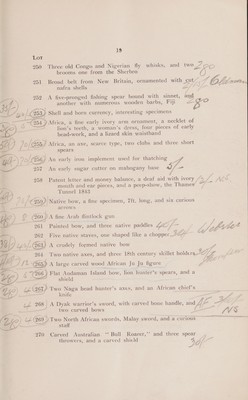 19
Lot
250 Three old Congo and Nigerian fly whisks, and two
brooms one from the Sherbro
251 Broad belt from New Britain, ornamented with cut
nafra shells
252 A five-pronged fishing spear bound with sinnet, and
another with numerous wooden barbs, Fiji
253 Shell and horn currency, interesting specimens
254 Africa, a fine early ivory arm ornament, a necklet of
lion's teeth, a woman's dress, four pieces of early
bead-work, and a lizard skin waistband
255 Africa, an axe, scarce type, two clubs and three short
spears
256 An early iron implement used for thatching
257 An early sugar cutter on mahogany base
258 Patent letter and money balance, a deaf aid with ivory
mouth and ear pieces, and a peep-show, the Thames
Tunnel 1843
259 Native bow, a fine specimen, 7ft. long, and six curious
arrows
260 A fine Arab flintlock gun
261 Painted bow, and three native paddles
262 Five native staves, one shaped like a chopper
263 A crudely formed native bow
264 Two native axes, and three 18th century skillet holders
265 A large carved wood African Ju Ju figure
266 Flat Andaman Island bow, lion hunter's spears, and a
shield
267 Two Naga head hunter's axes, and an African chief's
knife
268 A Dyak warrior's sword, with carved bone handle, and
two carved bows
269 Two North African swords, Malay sword, and a curious
staff
270 Carved Australian "Bull Roarer," and three spear
throwers, and a carved shield